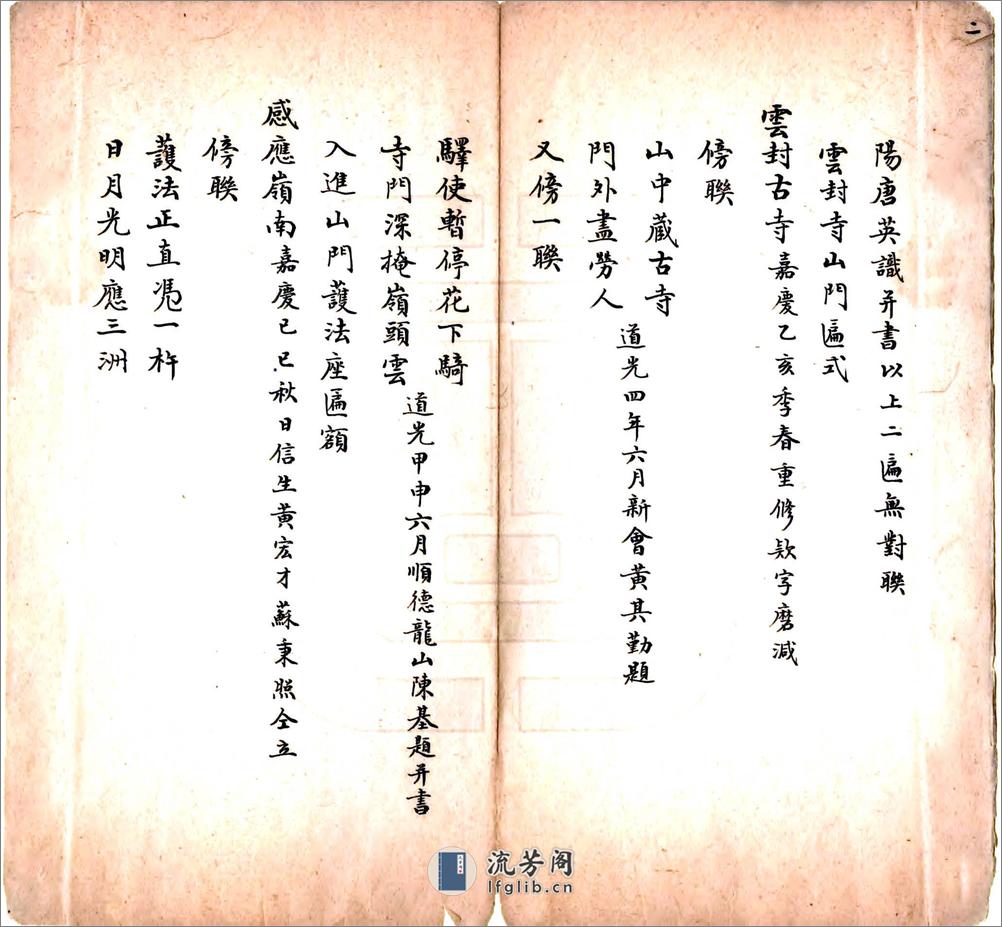 二
陽唐英識并書以上二匾無對聯
雲封寺山門匾式
雲封古寺嘉慶乙亥季春重修欵字磨減
傍聯
山中藏古寺
門外盡勞人
道光四年六月新會黄其勤題
又傍一聯
驛使暫停花下騎
寺門深掩嶺頭雲
道光甲申六月順德龍山陳基題并書
入進山門護法座匾額
感應嶺南嘉慶已已秋日信生黄宏才蘇秉照仝立
傍聯
護法正直凴一杵
日月光明應三洲
流芳阁
lfglib.cn